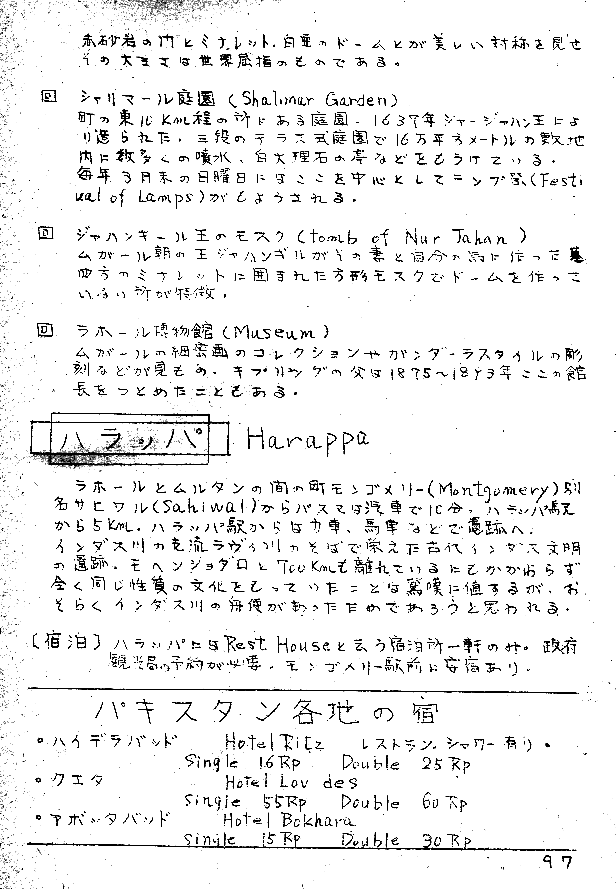 赤砂岩の門とミナレット、白亜のドームとが美しい対称を見せ
その大きさは世界屈指のものである。
回 シャリマール庭園 (Shalimar Garden)
町の東10Km程の所にある庭園。1637年シャージャハン王によ
り造られた。三段のテラス式庭園で16万平方メートルの敷地
内に数多くの噴水、白大理石の亭などをもうけている。
毎年3月末の日曜日にはここを中心としてランプ祭(Festi
val of Lamps)がもようされる。
回 ジャハンギール王のモスク (tomb of Nur Jahan)
ムガール朝の王ジャハンギルがその妻と自分の為に作った墓
四方のミナレットに囲まれた方形モスクでドームを作って
いない所が特徴。
回 ラホール博物館 (Museum)
ムガールの細密画のコレクションやガンダーラスタイルの彫
刻などが見もの。キプリングの父は1875~1893年ここの館
長をつとめたこともある。
ハラッパ Harappa
ラホールとムルタンの間の町モンゴメリー(Montgomery)別
名サヒワル(Sahiwal)からバス又は汽車で10分。ハラッパ駅
から5Km。ハラッパ駅からは力車、馬車などで遺跡へ。
インダス川の支流ラヴィ川のそばで栄えた古代インダス文明
の遺跡。モヘンジョダロと700Kmも離れているにもかかわらず
全く同じ性質の文化をもっていたことは驚嘆に値するが、お
そらくインダス川の舟便があったためであろうと思われる。
〔宿泊〕ハラッパにはRest Houseと云う宿泊所一軒のみ。政府
観光局の予約が必要。モンゴメリー駅前に安宿あり。
パキスタン各地の宿
• ハイデラバッド Hotel Ritz レストラン、シャワー有り。
Single 16Rp Double 25Rp
• クエタ Hotel Lourdes
Single 55Rp Double 60Rp
• アボッタバッド Hotel Bokhara
Single 15Rp Double 30Rp
97